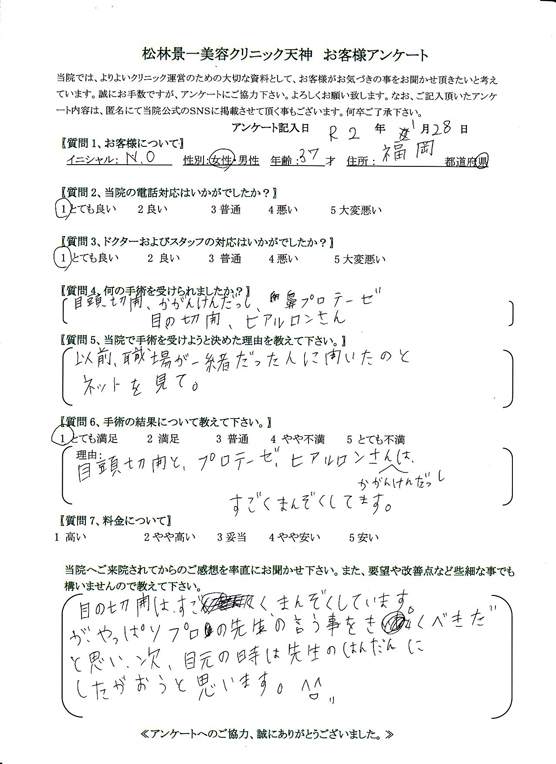 松林景一美容クリニック天神 お客様アンケート
当院では、よりよいクリニック運営のための大切な資料として、お客様がお気づきの事をお聞かせ頂きたいと考え
ています。誠にお手数ですが、アンケートにご協力下さい。よろしくお願い致します。なお、ご記入頂いたアンケ
ート内容は、匿名にて当院公式のSNSに掲載させて頂く事もございます。何卒ご了承下さい。
アンケート記入日 R 2 年 1月28日
【質問1、お客様について】
イニシャル: N.O 性別:女性・男性 年齢:37才 住所: 福岡 都道府県
【質問2、当院の電話対応はいかがでしたか?】
1とても良い 2 良い 3 普通 4悪い 5大変悪い
【質問3、ドクターおよびスタッフの対応はいかがでしたか?】
1とても良い 2 良い 3 普通 4悪い 5大変悪い
【質問4、何の手術を受けられましたか?】
目頭切開、かがんけんだっし、鼻プロテーゼ
目の切開、ヒアルロンさん
【質問5、当院で手術を受けようと決めた理由を教えて下さい。】
以前、職場が一緒だった人に聞いたのと
ネットを見て。
【質問6、手術の結果について教えて下さい。】
1とても満足 2 満足 3 普通 4 やや不満 5 とても不満
理由:
目頭切開と、プロテーゼ、ヒアルロンさんは、
かがんけんだっし
すごくまんぞくしてます。
【質問7、料金について】
1 高い 2やや高い 3妥当 4やや安い 5安い
当院へご来院されてからのご感想を率直にお聞かせ下さい。また、要望や改善点など些細な事でも
構いませんので教えて下さい。
目の切開は、すごくまんぞくしています。
が、やっぱりプロの先生の言う事をきくべきだ
と思い、次、目元の時は先生のはんだんに
したがおうと思います。^^
≪アンケートへのご協力、誠にありがとうございました。≫